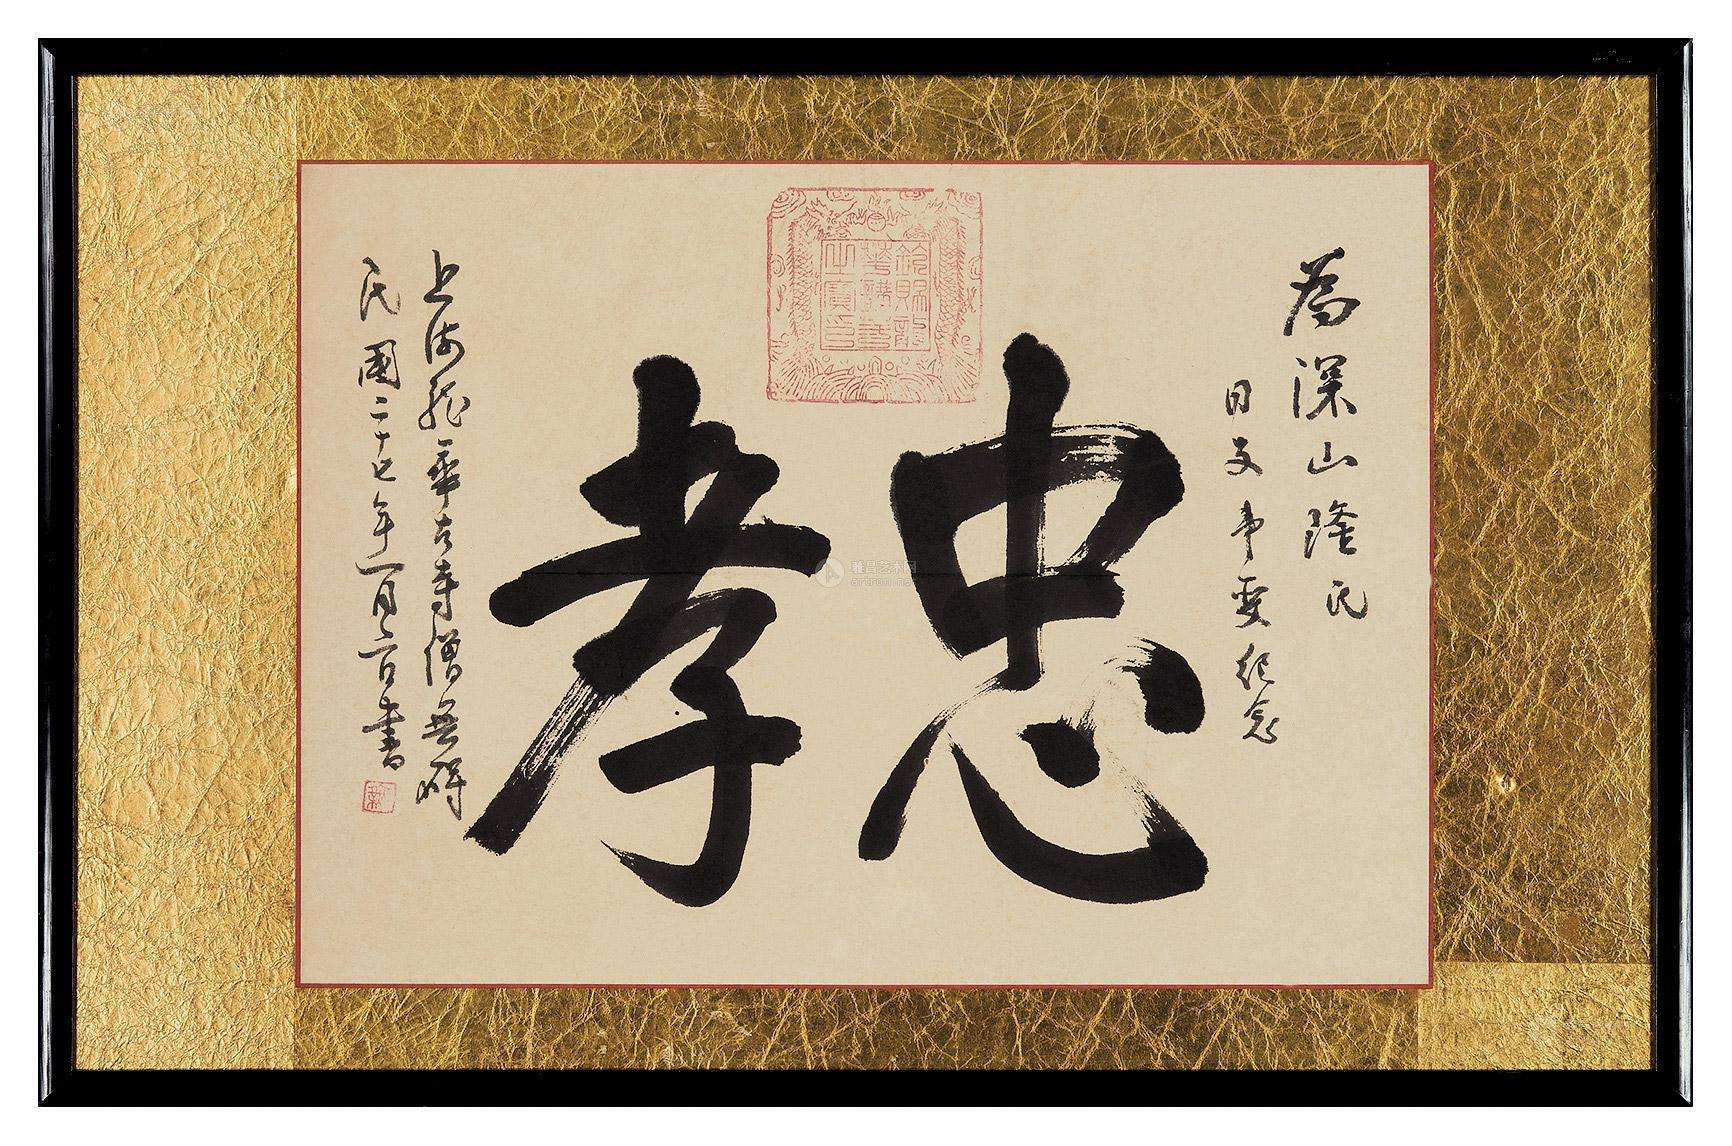 為深山隆氏
日支事変紀念
忠孝
欽賜龍
華講寺
之寶印
上海龍華古寺僧無礙
民國二十七年一月二日書
雅昌艺术网
artron.net